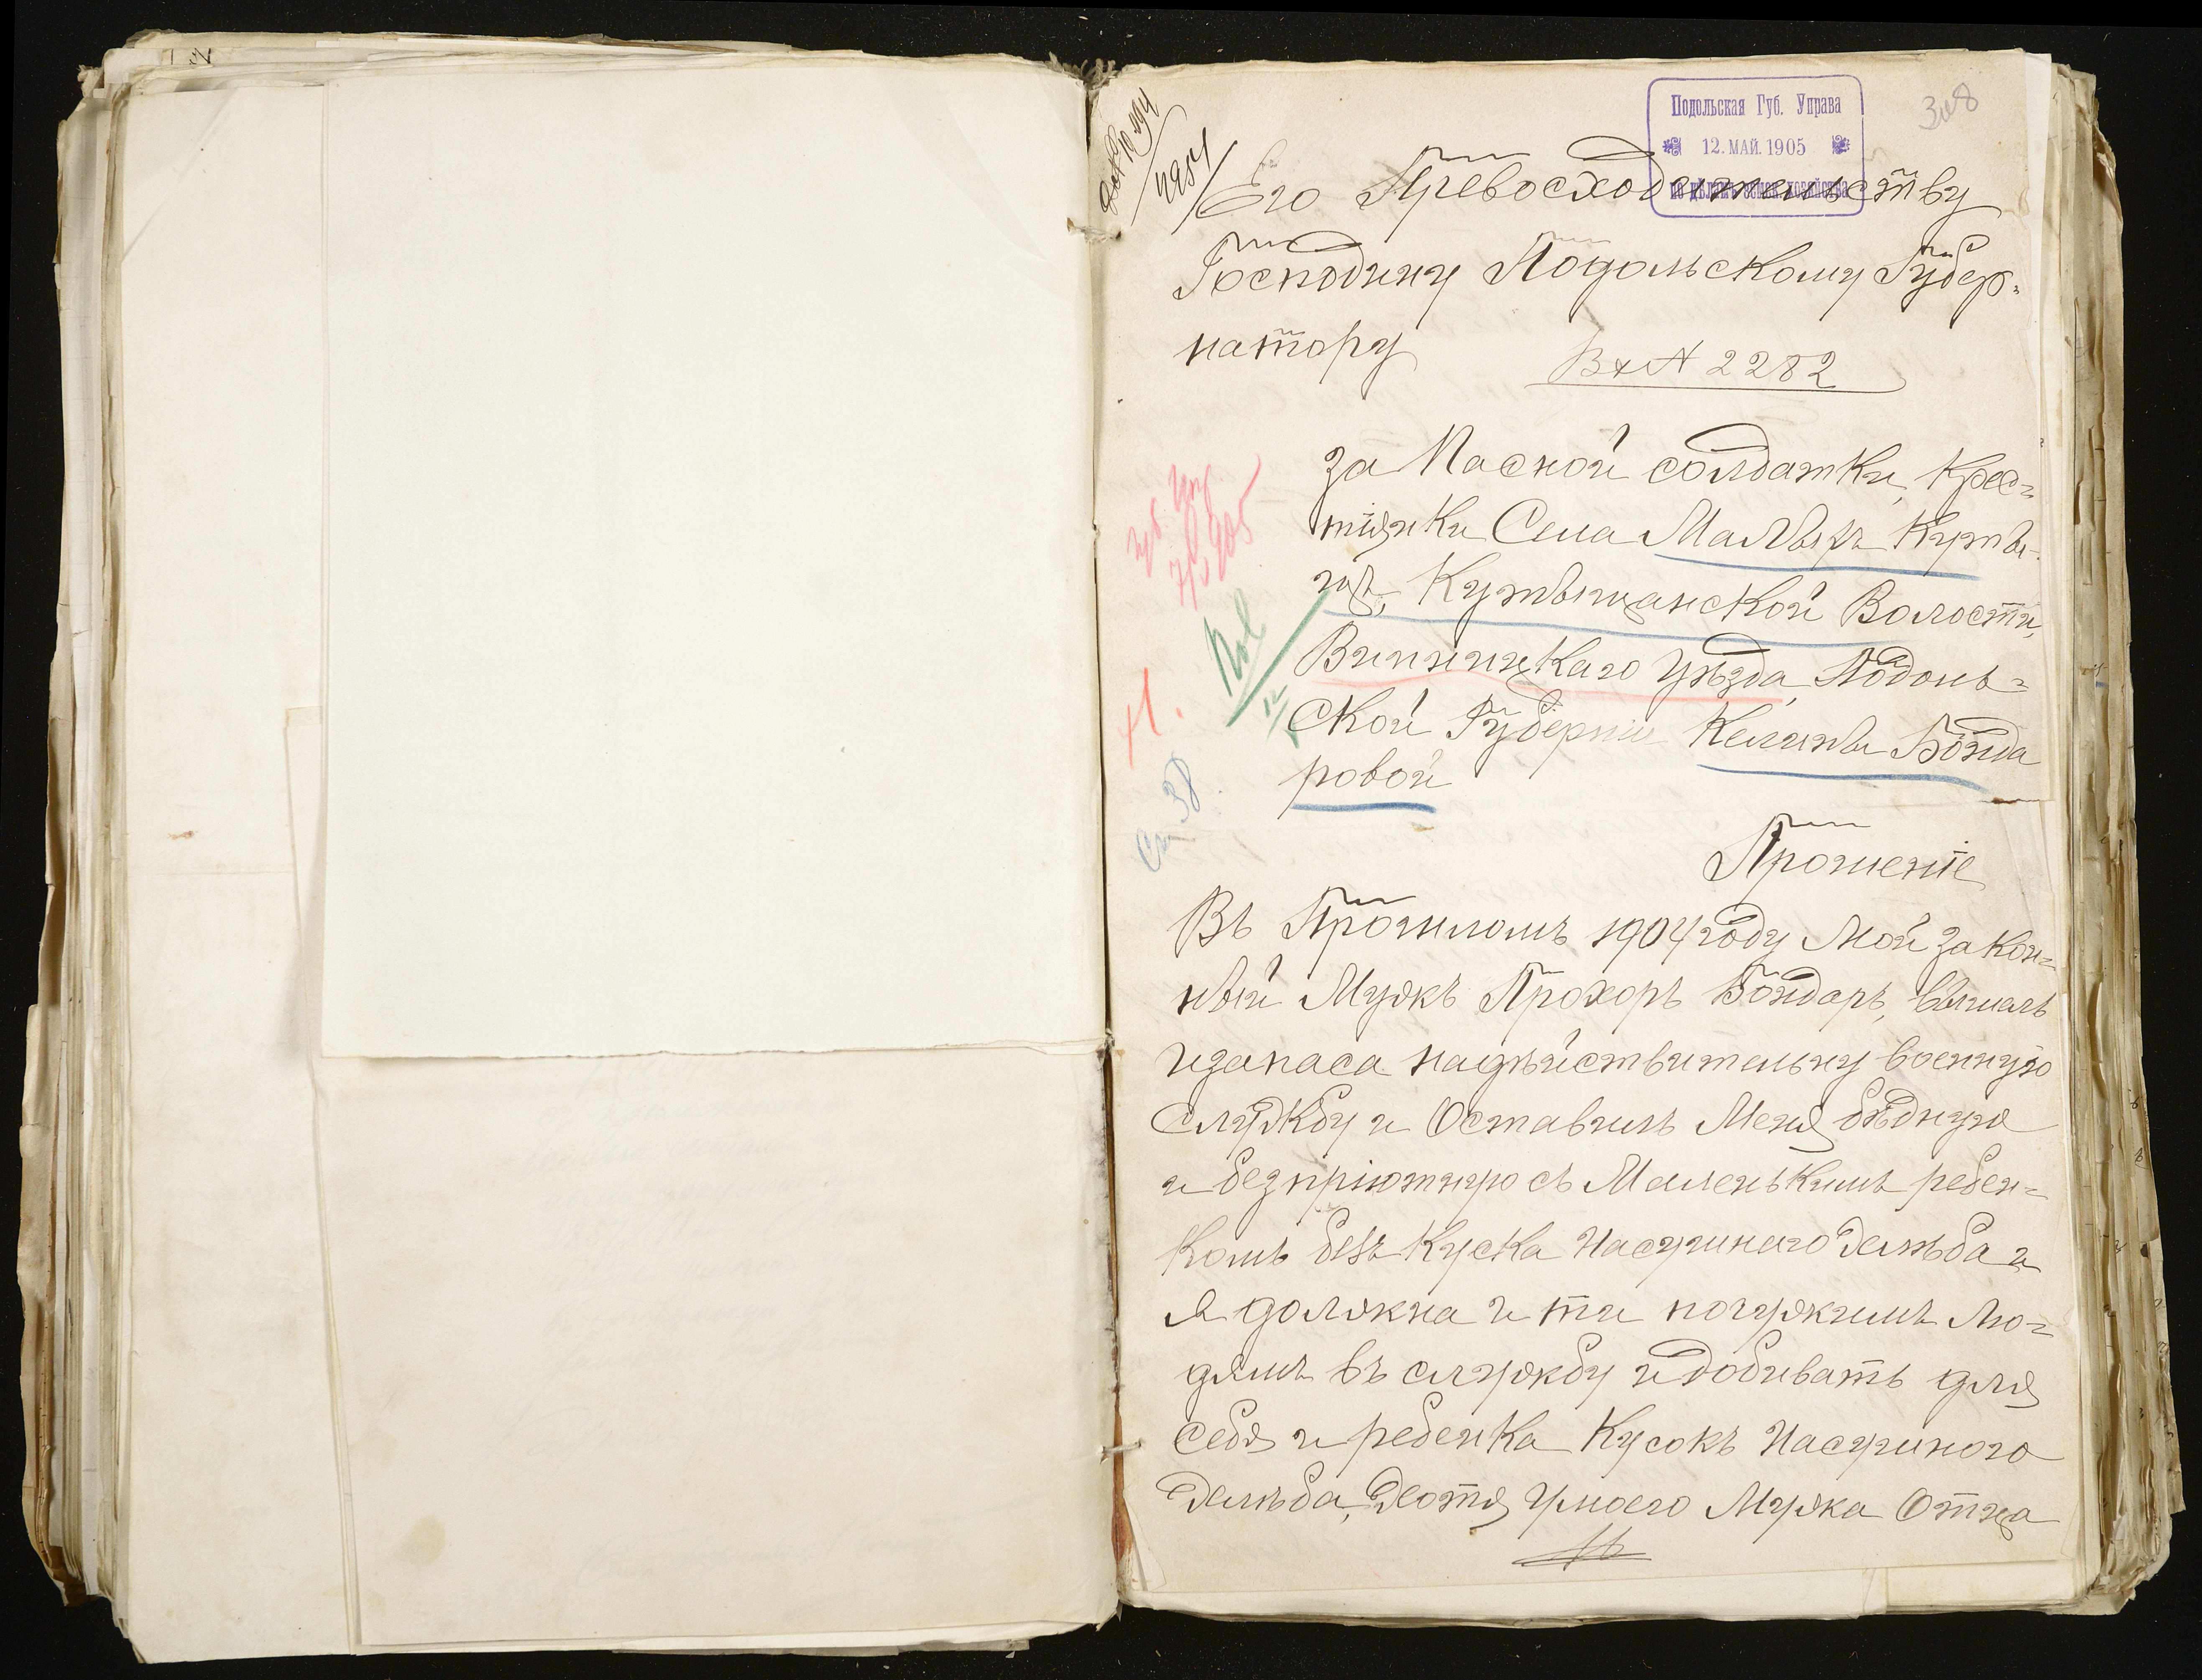 Подольская Губ. Управа
12. МАЙ. 1905
по дѣламъ земск. хозяйства
Его Превосходительству
Господину Подольскому Губер-
натору
Вх N 2282
за Пасной солдатки, Крес-
тіянки Села Малыхъ Куты-
щъ, Кутыщанской Волости,
Винницкаго Уѣзда, Подоль-
ской Губерніи Келины Бонда
ровой
Прошеніе
Въ Прошломъ 1904 году Мой закон-
ный Мужъ Прохоръ Бондарь, вышелъ
изапаса надѣйствительну военную
службу и Оставилъ Меня бѣдную
и безпріютную съ Маленькимъ ребен-
комъ безъ Куска Насущнаго хлѣба и
я должна и ти почужимъ Лю-
дямъ въ службу и добивать для
себя и ребенка Кусокъ Насущного
хлѣба, хотя Умоего Мужа Отца